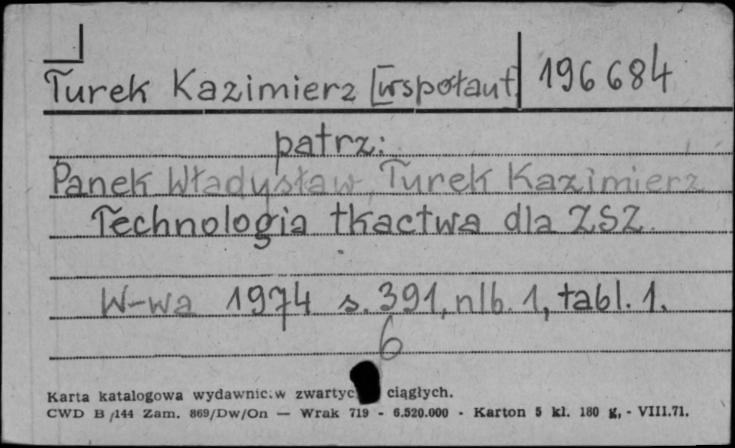 Turek Kazimierz [współaut] 196684
patrz:
Panek Władysław, Turek Kazimierz
Technologia tkactwa dla ZSZ.
W-wa 1974 s. 391, nlb. 1, tabl. 1.
6
Karta katalogowa wydawnic.w ciągłych.
CWD B/144 Zam. 869/Dw/On — Wrak 719 - 6.520.000 - Karton 5 kl. 180 g, - VIII.71.